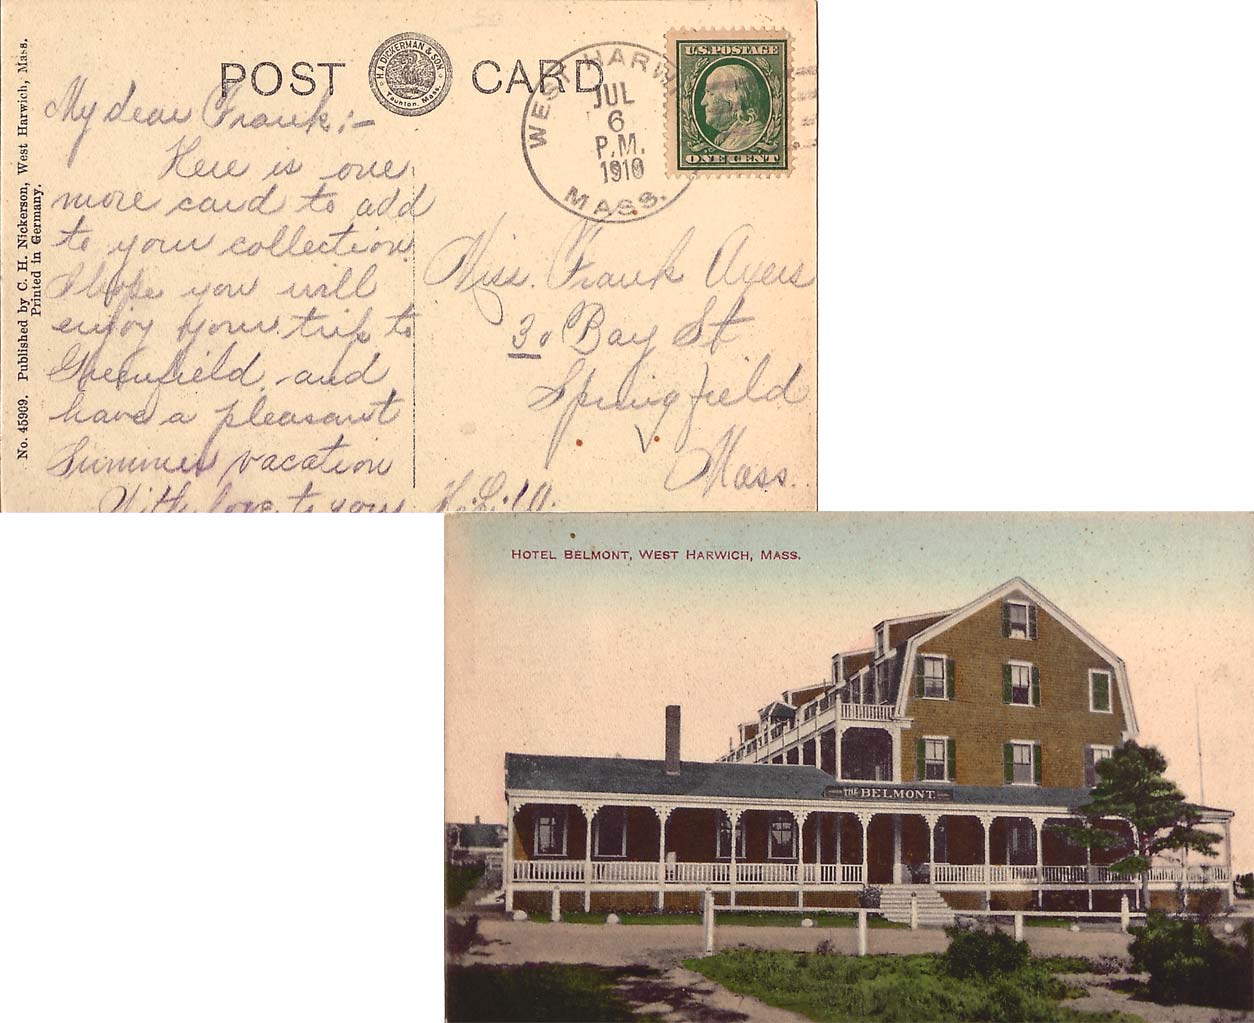 No. 45909. Published by C. H. Nickerson, West Harwich, Mass.
Printed in Germany.
POST CARD
H.A. DICKERMAN & SON
Taunton, Mass.
WEST HARW
JUL
6
P.M.
1910
MASS.
U.S. POSTAGE
ONE CENT
My dear Frank;-
Here is one
more card to add
to your collection.
I hope you will
enjoy your trip to
Greenfield and
have a pleasant
Summer vacation
With love to your
Miss. Frank Ayers
30 Bay St
Springfield
Mass.
HOTEL BELMONT, WEST HARWICH, MASS.
THE BELMONT.